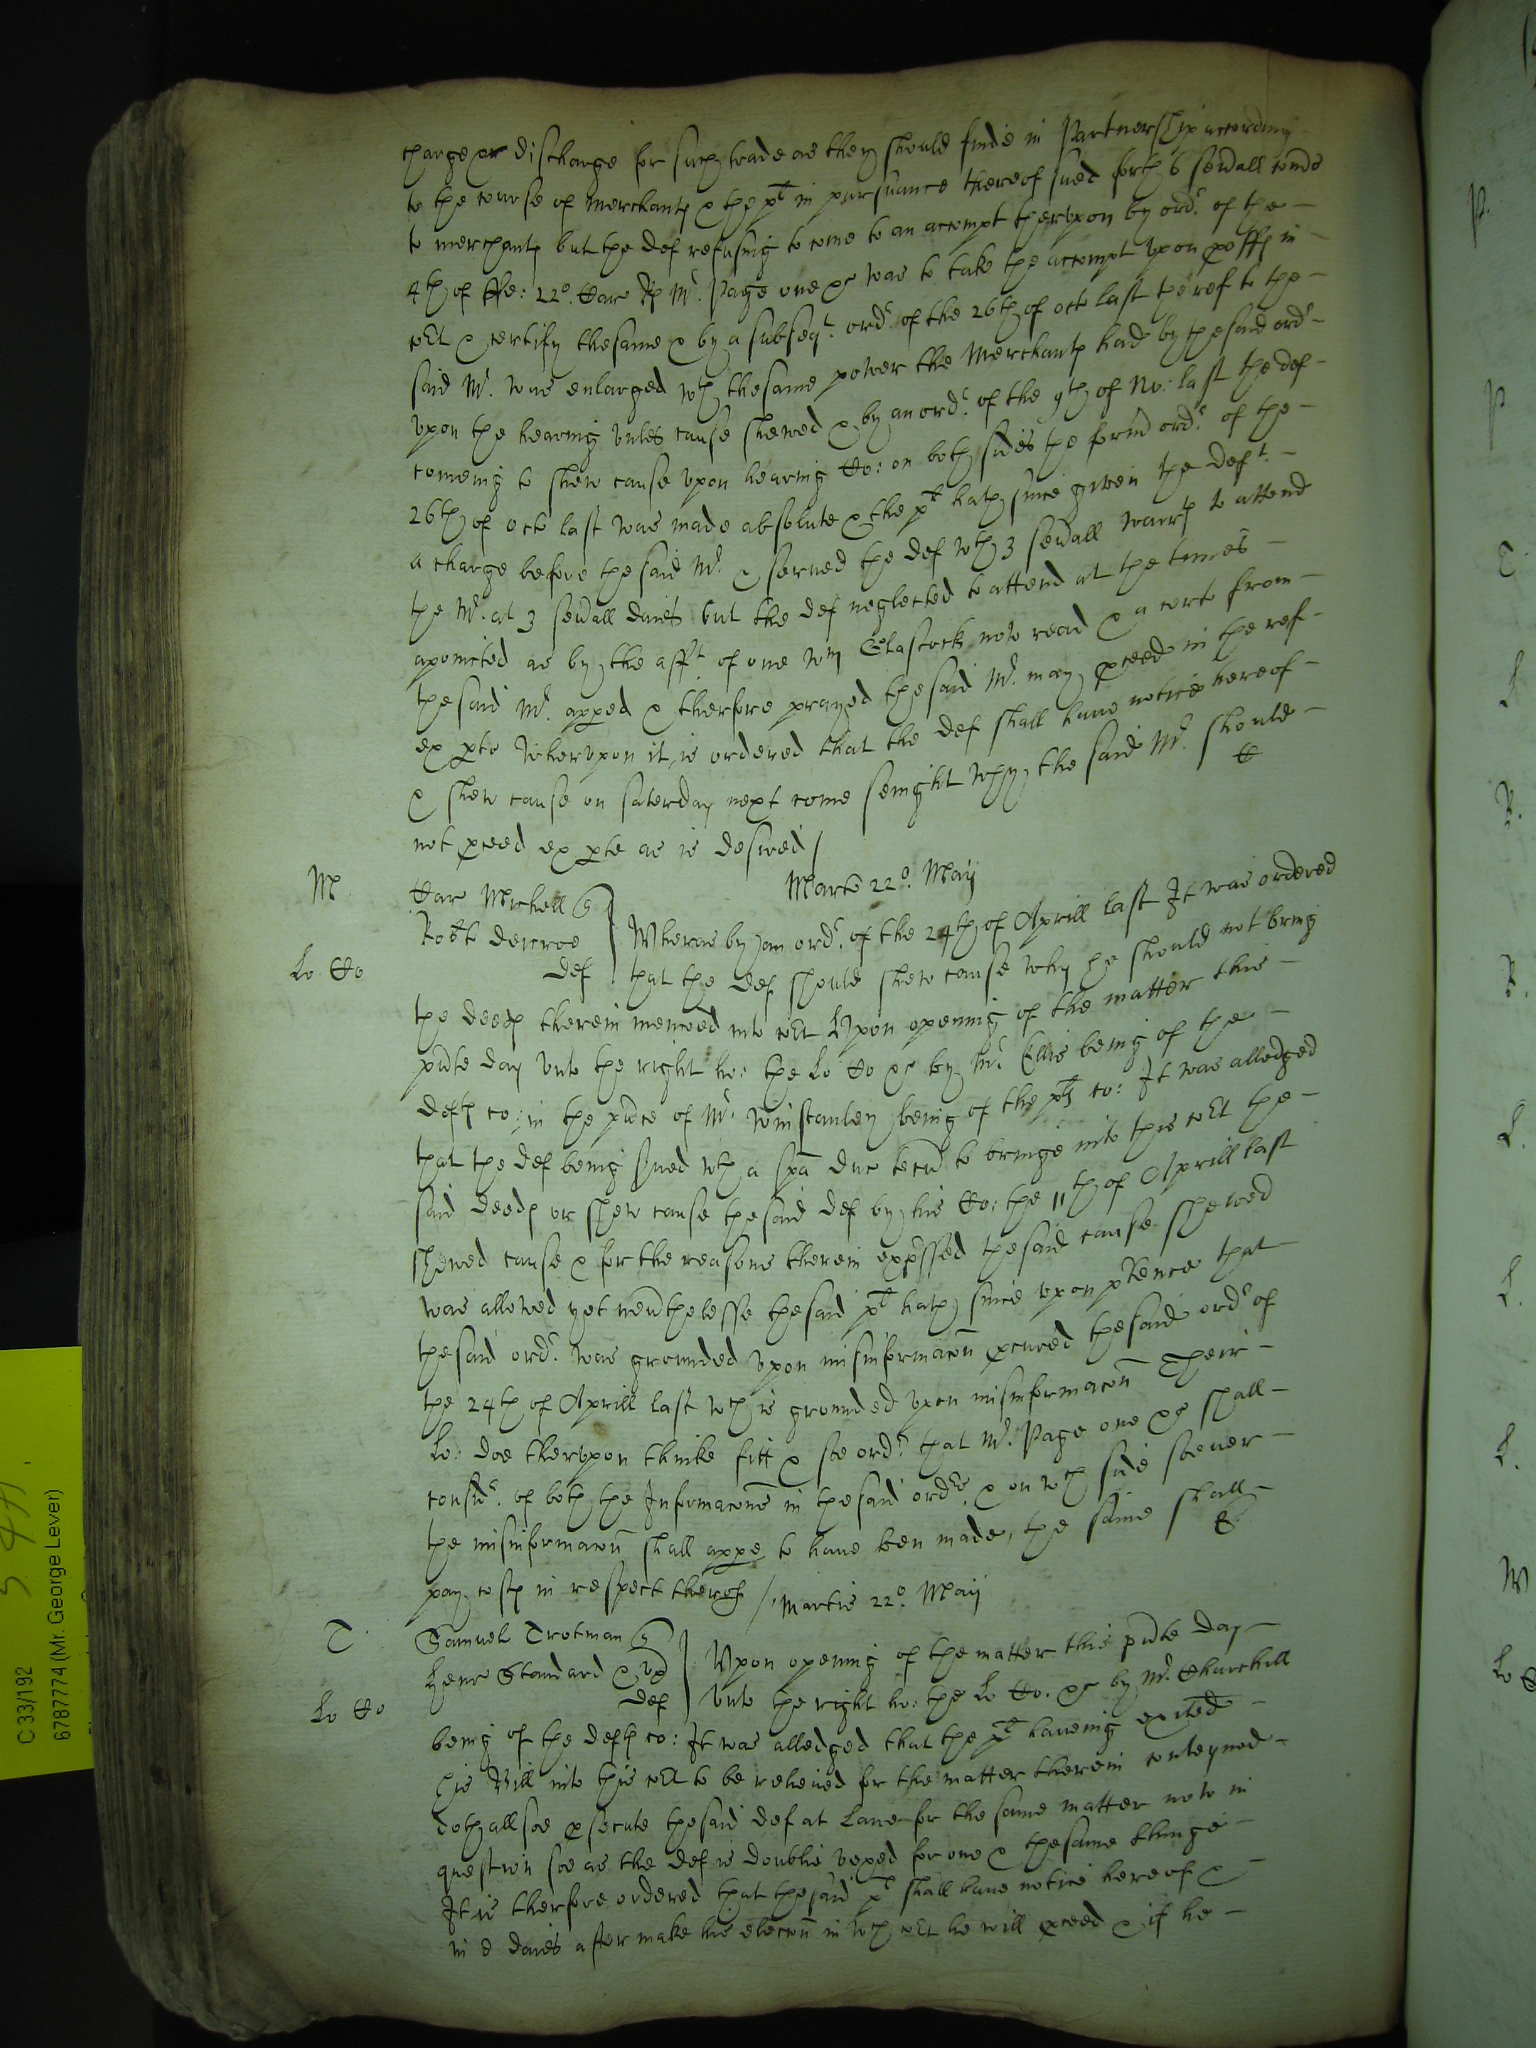 charge or discharge for such trade as they should finde in Partnership according
to the course of merchantes & the plt in pursuance thereof sued forth 6 severall comds
to merchants but the def refusing to come to an accompt therupon by ordr. of the
4th of ffe: 22o. Mr. Page one &c was to take the accompt upon in
cot & certify thesame & by a subseqt. ordr. of the 26th of octo last the ref to the
said Mr. was enlarged wth thesame power the Merchants had by thesaid ordr
upon the hearing unles cause shewed & by an ordr. of the 9th of No: last the def
comeing to shew cause upon hearing Co: on both sides the formr ordr. of the
26th of octo last was made absolute & the plt hath since given the deft.
a charge before the said Mr. & served the def wth 3 severall warrts to attend
the Mr. at 3 severall daies but the def neglected to attend at the times
apointed as by the afft of one Wm Glascock now read & a certe from
thesaid Mr. apped & therfore prayed thesaid Mr. may pceed in the ref
ex pte Wherupon it is ordered that the def shall have notice hereof
& shew cause on saterday next come senight why the said Mr. should
not pceed ex pte as is desired /
Martis 22o. Maij
M
Michell q
Robt def
Wheras by an ordr. of the 24th of Aprill last It was ordered
that the def should shew cause why he should not bring
the deeds therein menconed into cot Upon opening of the matter this
pnte day unto the right ho: the Lo Co &c by Mr. Ellis being of the
defts co: in the pnce of Mr. Winstanley being of the plts co: It was alledged
that the def being served wth a spa duc tecu to bringe into this cot the
said deeds or shew cause thesaid def by his Co: the 11th of Aprill last
shewed cause & for the reasons therein expssed thesaid cause shewed
was allowed yet nevthelesse thesaid plt hath since upon ptence that
thesaid ordr. was grounded upon misinformacon pcured thesaid ordr of
the 24th of Aprill last wch is grounded upon misinformacon Their
Lo: doe therupon thinke fitt & soe ordr. that Mr. Page one &c shall
consider. of both the Informacons in thesaid ordrs. & on wch side soever
the misinformacon shall appe to have ben made, the same shall
pay costs in respect therof /
Martis 22o Maij
T
Samuel Trotman q
Henr Standard & ux
def
Lo Co
Upon opening of the matter this pnte day
unto the right ho: the Lo Co. &c by Mr. Churchill
being of the defts co: It was alledged that the plt haveing exited
his Bill into this cot to be releived for the matter therein conteyned
doth allsoe psecute thesaid def at Lawe for the same matter now in
question soe as the def is doublie vexed for one & thesame thinge
It is therfore ordered that thesaid plt shall have notice hereof &
in 8 daies after make his eleccon in wch cot he will pceed & if he
C 33/192
6787774 (Mr. George Lever)